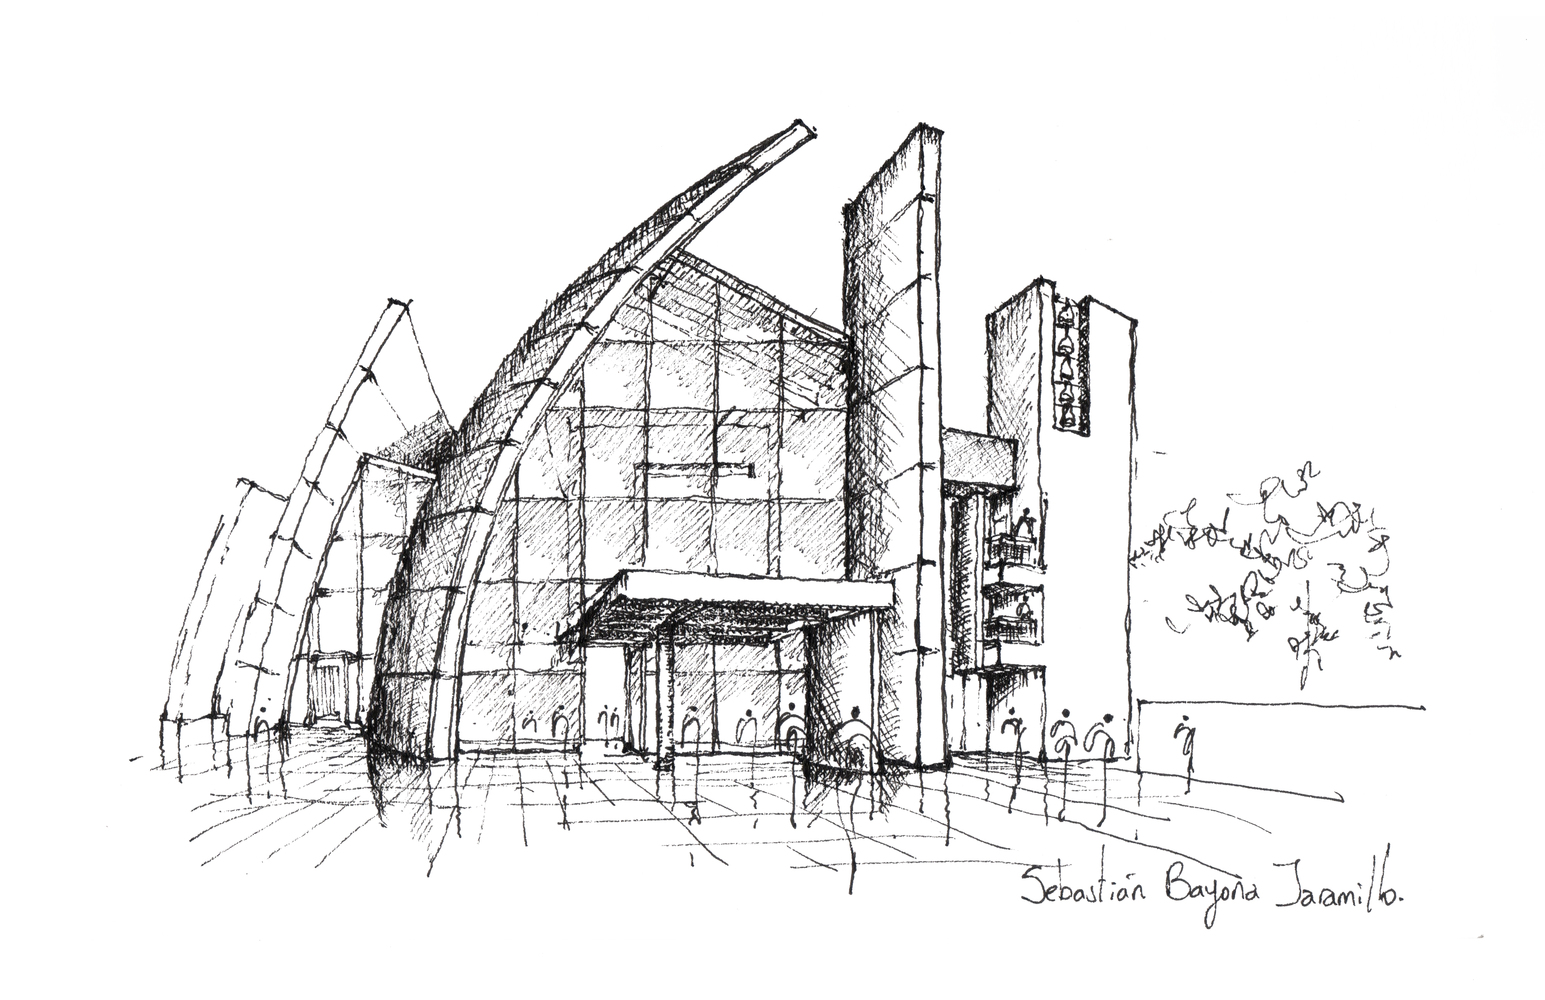 Sebastián Bayona Jaramillo.